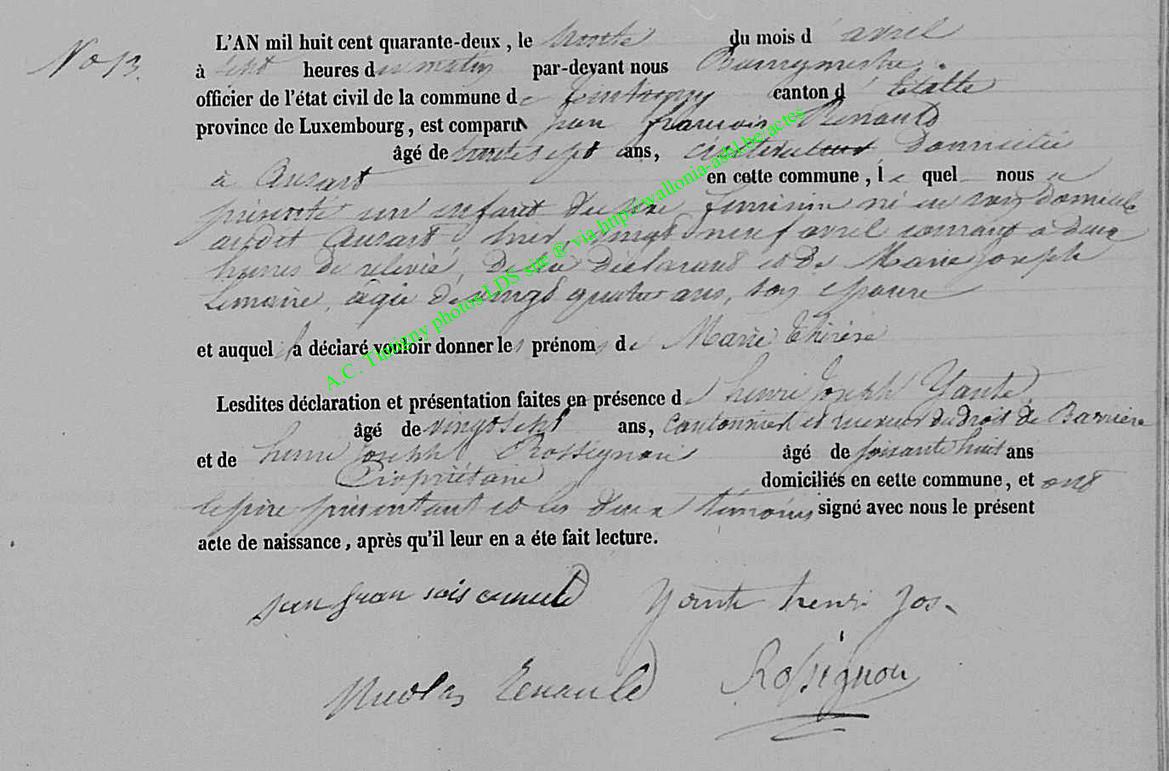 No 13.
L'AN mil huit cent quarante-deux, le trente du mois d'avril
à sept heures du matin par-devant nous Bourgmestre
officier de l'état civil de la commune de canton d'Etalle
province de Luxembourg, est comparu jean françois Renauld
âgé de trente sept ans, cultivateur domicilié
à Ansart en cette commune, le quel nous a
présenté un enfant du sexe feminin né en son domicile
audit Ansart hier vingt neuf avril courant a deux
heures de relevée, de lui déclarant et de Marie joseph
Lemaire, âgée de vingt quatre ans, son epouse
et auquel il a déclaré vouloir donner les prénoms de Marie thérèse
Lesdites déclaration et présentation faites en présence d henri joseph Yante
âgé de vingt sept ans, Cantonnier et receveur du droit de Barrière
et de henri joseph Rossignon âgé de soixante huit ans
Propriétaire domiciliés en cette commune, et ont
le père présentant et les deux témoins signé avec nous le présent
acte de naissance, après qu'il leur en a éte fait lecture.
jean fran sois Yante henri jos
Nicolas Renauld Rossignon
A.C. Tintigny photos LDS site @ via http://wallonia-asbl.be/actes